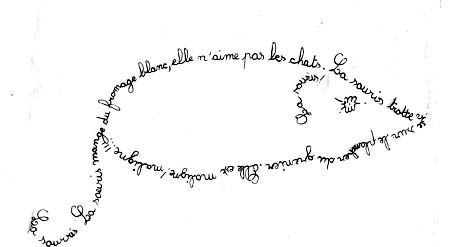 La souris La souris mange du fromage blanc, elle n'aime pas les chats. La souris trotte sur le plancher du grenier. Elle est maligne, maligne !!..
La souris!